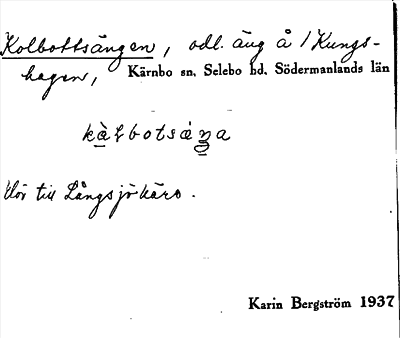 Kolbottsängen, odl. äng å Kungs-
hagen, Kärnbo sn. Selebo hd. Södermanlands län
Hör till Långsjökärr.
Karin Bergström 1937